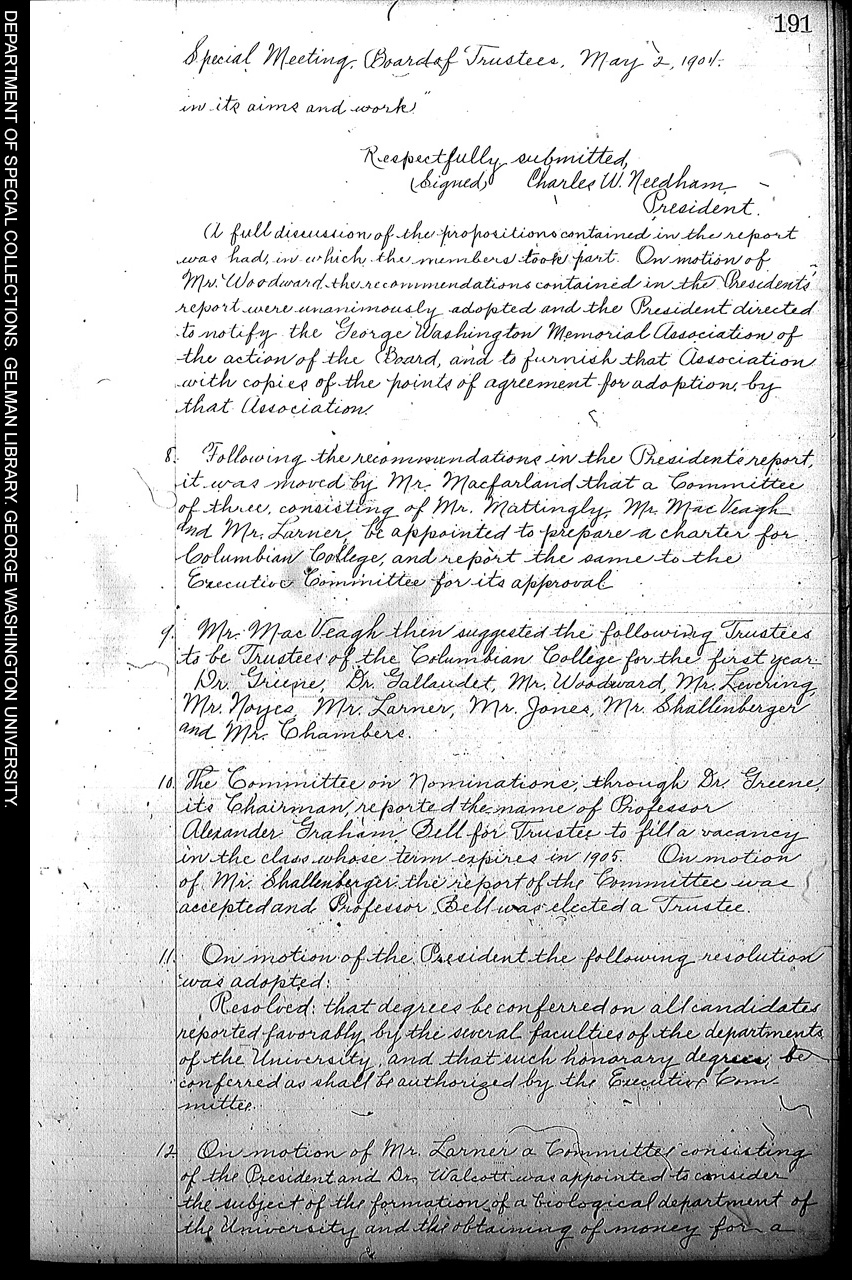 191
Special Meeting, Board of Trustees, May 2, 1904.
in its aims and work"
Respectfully submitted,
(Signed) Charles W. Needham
President.
A full discussion of the propositions contained in the report
was had, in which the members took part. On motion of
Mr. Woodward the recommendations contained in the President's
report were unanimously adopted and the President directed
to notify the George Washington Memorial Association of
the action of the Board, and to furnish that Association
with copies of the points of agreement for adoption by
that Association.
8. Following the recommendations in the President's report,
it was moved by Mr. Macfarland that a Committee
of three, consisting of Mr. Mattingly, Mr. Mac Veagh
and Mr. Larner, be appointed to prepare a charter for
Columbian College, and report the same to the
Executive Committee for its approval
9. Mr. Mac Veagh then suggested the following Trustees
to be Trustees of the Columbian College for the first year
Dr. Greene, Dr. Gallaudet, Mr. Woodward, Mr. Levering,
Mr. Noyes, Mr. Larner, Mr. Jones, Mr. Shallenberger
and Mr. Chambers.
10. The Committee on Nominations, through Dr. Greene,
its Chairman, reported the name of Professor
Alexander Graham Bell for Trustee to fill a vacancy
in the class whose term expires in 1905. On motion
of Mr. Shallenberger the report of the Committee was
accepted and Professor Bell was elected a Trustee.
11. On motion of the President the following resolution
was adopted:
Resolved: that degrees be conferred on all candidates
reported favorably by the several faculties of the departments
of the University, and that such honorary degrees, be
conferred as shall be authorized by the Executive Com-
mittee.
12. On motion of Mr. Larner a Committee consisting
of the President and Dr. Walcott was appointed to consider
the subject of the formation of a biological department of
the University and the obtaining of money for a
DEPARTMENT OF SPECIAL COLLECTIONS, GELMAN LIBRARY, GEORGE WASHINGTON UNIVERSITY.